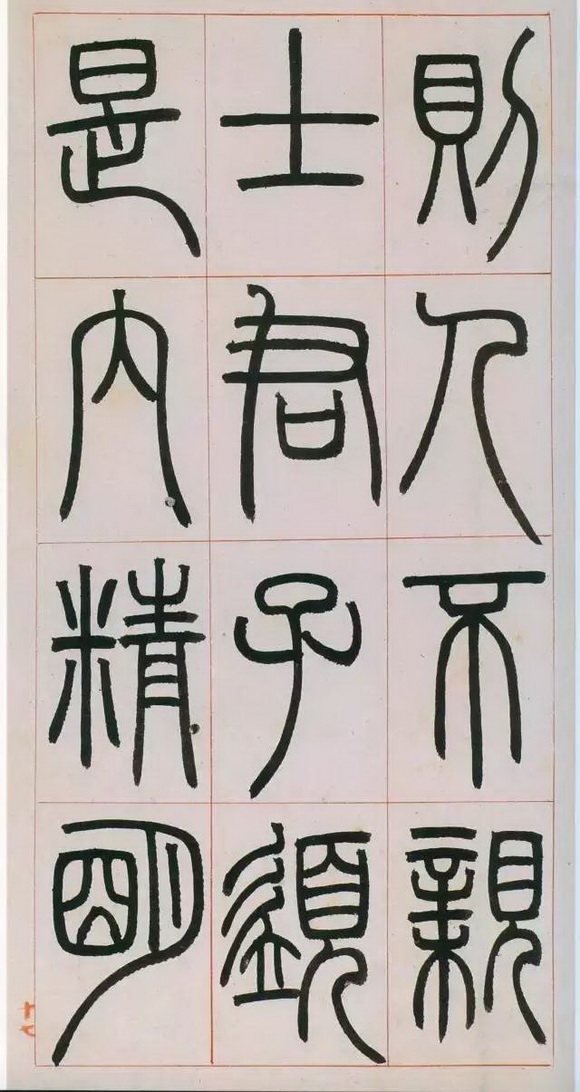 則人不親
士君子須
是內精明